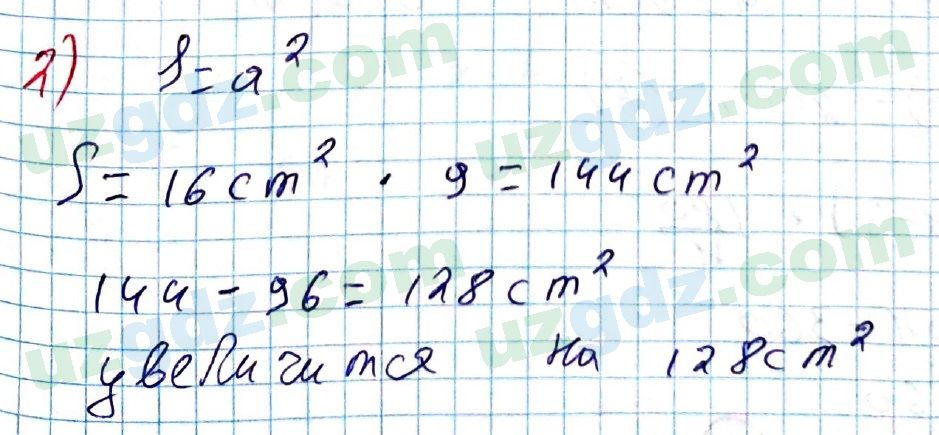 2) S = a²
S = 16 cm² · 9 = 144 cm²
144 - 96 = 128 cm²
увеличится на 128 cm²
uzgdz.com
uzgdz.com
uzgdz.com
uzgdz.com